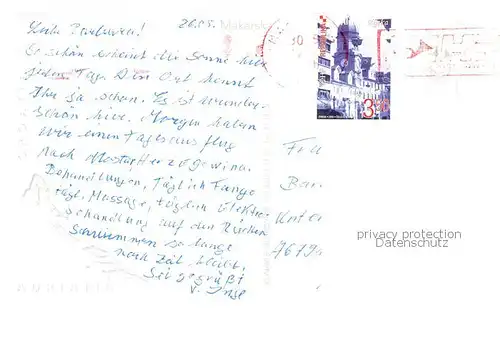 26.05.
Makarska
Liebe Barbaren!
So schön scheint die Sonne hier
jeden Tag. Den Ort kennt
Ihr ja schon. Es ist wunder-
schön hier. Morgen haben
wir einen Tagesausflug
nach Mostar Herzogowina.
Behandlungen, Täglich Fango
tägl. Massage, täglich Elektro-
behandlung auf den Rücken
Schwimmen so lange
noch Zeit bleibt.
Sei gegrüßt
v. Inge
Fra
Bar
Unter
privacy protection
Datenschutz